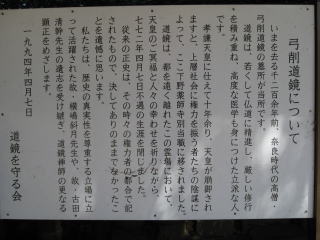 弓削道鏡について
いまを去る千二百余年前、奈良時代の高僧
弓削道鏡の墓所が当所です。
道鏡は、若くして仏道に精進し、厳しい修行
を積み重ね、高度な医学も身につけた立派な人
孝謙天皇に仕えて十年余り、天皇が崩御され
ますと、上層社会に権力を振う者たちの陰謀に
よって、ここ下野薬師寺別当職に移されました。
道鏡は、都を遠く離れたこの霊場において、
天皇のご冥福と人々の幸せを祈りながら、
七七二年四月七日不遇の生涯を閉じました。
従来の正史は、その時々の権力者の都合で記
されたもので、決してありのままでなかったこ
とを遺憾に思います。
私たちは、歴史の真実性を尊重する立場に立
って活躍された故・横嶋斜月先生や、故・古田
清幹先生の遺志を受け継ぎ、道鏡禅師の更なる
顕正をめざします。
一九九四年四月七日
道鏡を守る会